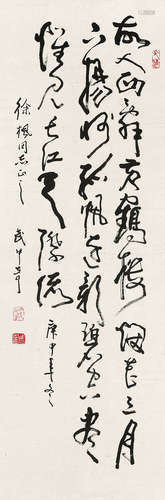 故人西辭黄鶴樓煙花三月
下揚州孤帆遠影碧空盡
惟見長江天際流 庚申年冬
徐楓同志正之 武中奇